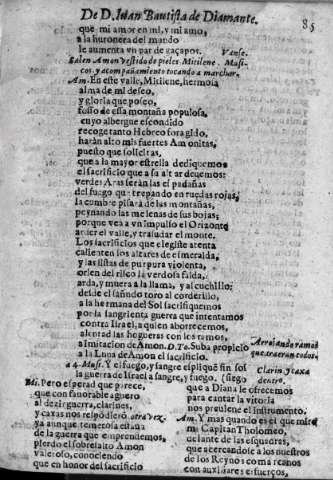 De D. Iuan Bautista de Diamante.
85
que mi amor en mi, y mi amo,
a la huronera del mando
le aumenta vn par de gaçapos.
Vanse.
Salen Amon vestido de pieles, Mitilene. Musi-
cos, y acompañamiento tocando a marchar.
Am. En este valle, Mitilene, hermosa
alma de mi deseo,
y gloria que poseo,
fosso de esta montaña populosa,
cuyo albergue escondido
recoge tanto Hebreo foragido,
harán alto mis fuertes Amonitas,
puesto que solicitas,
que a la mayor estrella dediquemos
el sacrificio que a su altar deuemos:
verdes Aras serán las espadañas
del fuego que trepando en ruedas rojas,
la cumbre pisará de las montañas,
peynando las melenas de sus hojas;
porque vea a vn impulso el Orizonte
arder el valle, y trasudar el monte.
Los sacrificios que elegiste atenta
calienten los altares de esmeralda,
y las listas de purpura violenta,
orlen del risco la verdosa falda,
arda, y muera a la llama, y al cuchillo:
desde el sañudo toro al corderillo,
a la hermana del Sol sacrifiquemos
por la sangrienta guerra que intentamos
contra Israel, a quien aborrecemos,
alentad las hogueras con los ramos,
a imitacion de Amon. D. Ya. Suba propicio
a la Luna de Amon el sacrificio.
Arrojando ramos
que traeran todos.
a 4. Musi. Y el fuego, y sangre
la guerra de Israel a sangre, y fuego.
Clarin, y caxa
dentro.
Mi. Pero esperad que parece,
que con fauorable aguero
al dezir guerra, clarines,
y caxas nos respondieron
otra vez.
ya aunque temerosa estaua
de la guerra que emprendemos,
pierdo el sobresalto Amon
valeroso, conociendo
que en honor del sacrificio
que a Diana le ofrecemos
para cantar la vitoria
nos preuiene el instrumento.
Am. Y mas quando es el que miro
mi Capitan Tholomeo,
delante de las esquadras,
que acercandose a los nuestros
de los Reynos comarcanos
con auxiliares esfuerços,